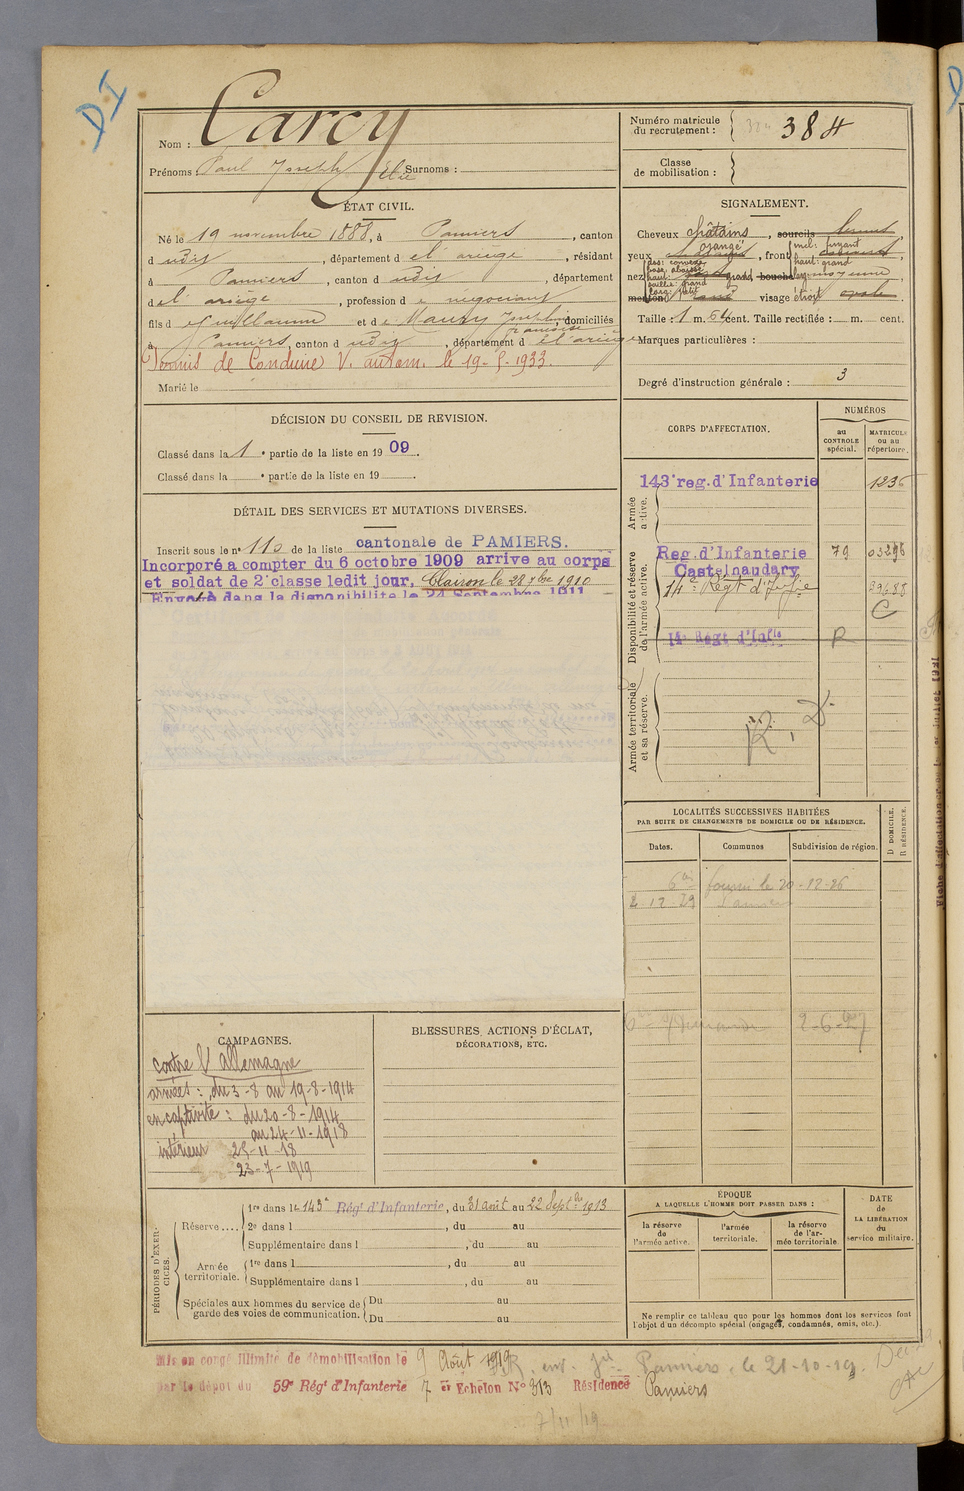 DI
Nom : Carcy
Prénoms Paul Joseph Elie Surnoms :
Numéro matricule du recrutement : 384
Classe de mobilisation :
ÉTAT CIVIL.
Né le 19 novembre 1888, à Pamiers, canton
d udit, département de l'ariège, résidant
à Pamiers, canton d udit, département
de l'ariège, profession de négociant
fils de Guillaume et de Maury Joséphine françoise, domiciliés
à Pamiers, canton d udit, département de l'ariège
Permis de Conduire V. autom. le 19-5-1933.
Marié le
SIGNALEMENT.
Cheveux châtains, sourcils bruns,
yeux orangé, front incl: fuyant haut: grand larg: moyenne,
nez dos: convexe base: abaissée haut: grand saillie: grand larg: petit bouche
menton visage étroit ovale.
Taille : 1 m. 54 cent. Taille rectifiée : m. cent.
Marques particulières :
Degré d'instruction générale : 3
DÉCISION DU CONSEIL DE REVISION.
Classé dans la 1e partie de la liste en 1909.
Classé dans la e partie de la liste en 19 .
DÉTAIL DES SERVICES ET MUTATIONS DIVERSES.
Inscrit sous le n° 110 de la liste cantonale de PAMIERS.
Incorporé a compter du 6 octobre 1909 arrive au corps
et soldat de 2e classe ledit jour, Clairon le 28 7bre 1910
Envoyé dans la disponibilite le 24 Septembre 1911
CORPS D'AFFECTATION.
NUMÉROS
au CONTROLE spécial.
MATRICULE ou au répertoire.
Armée active.
143e reg. d'Infanterie 1236
Disponibilité et réserve de l'armée active.
Reg. d'Infanterie 79 03296
Castelnaudary
14e Régt d'Infie 29688
C
14e Régt d'Infie R
Armée territoriale et sa réserve.
R, D.
LOCALITÉS SUCCESSIVES HABITÉES
PAR SUITE DE CHANGEMENTS DE DOMICILE OU DE RÉSIDENCE.
Dates.
Communes
Subdivision de région.
D DOMICILE.
R RÉSIDENCE.
fourni le 20-12-26
2-12-29 Pamiers
2-6-27
CAMPAGNES.
contre l'allemagne
armées : du 3-8 au 19-8-1914
en captivité : du 20-8-1914
au 24-11-1918
intérieur 25-11-18
23-7-1919
BLESSURES, ACTIONS D'ÉCLAT,
DÉCORATIONS, ETC.
PÉRIODES D'EXERCICES.
Réserve....
1re dans le 143e Régt d'Infanterie, du 31 août au 22 Septbre 1913
2e dans l , du au
Supplémentaire dans l , du au
Armée territoriale.
1re dans l , du au
Supplémentaire dans l , du au
Spéciales aux hommes du service de garde des voies de communication.
Du au
Du au
ÉPOQUE
A LAQUELLE L'HOMME DOIT PASSER DANS :
la réserve de l'armée active.
l'armée territoriale.
la réserve de l'armée territoriale.
DATE de LA LIBÉRATION du service militaire.
Ne remplir ce tableau que pour les hommes dont les services font
l'objet d'un décompte spécial (engagés, condamnés, omis, etc.).
Mis en congé illimité de démobilisation le 9 Août 1919
par le dépôt du 59e Régt d'Infanterie 7e Echelon N° 313 Résidence Pamiers
Pamiers, le 21-10-19
7/11/19